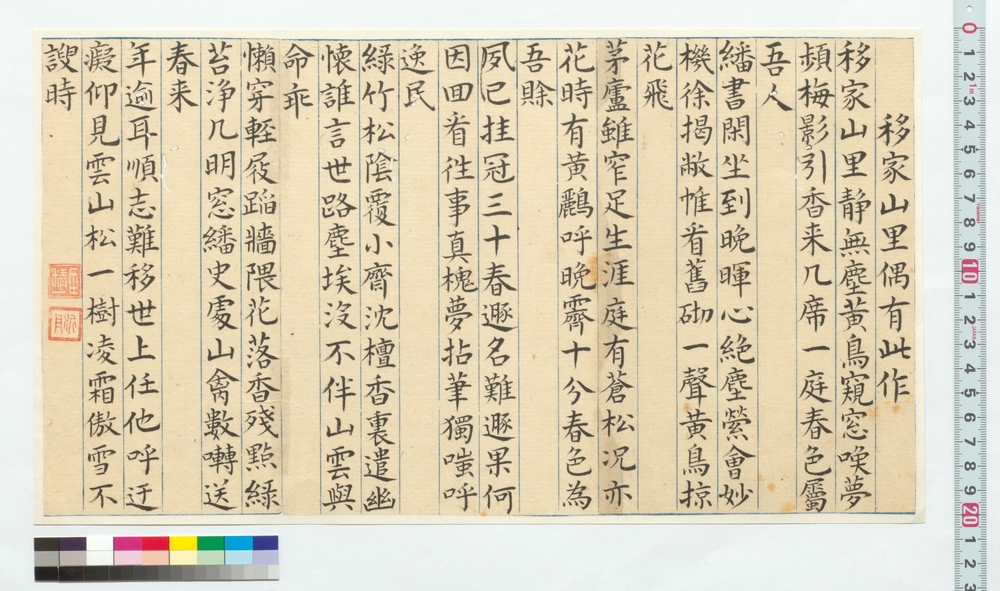 移家山里偶有此作
移家山里静無塵黃鳥窺窓喚夢
頻梅影引香来几席一庭春色屬
吾人
繙書閑坐到晩暉心絶塵縈會妙
機徐揭敝帷看舊砌一聲黃鳥掠
花飛
茅廬雖窄足生涯庭有蒼松况亦
花時有黃鸝呼晩霽十分春色為
吾賖
夙已挂冠三十春遯名難遯果何
因回看徃事真槐夢拈筆獨嗤呼
逸民
綠竹松陰覆小齋沈檀香裏遣幽
懷誰言世路塵埃没不伴山雲與
命乖
懶穿輕屐蹈牆隈花落香殘點綠
苔浄几明窓繙史處山禽數囀送
春来
年逾耳順志難移世上任他呼迂
癡仰見雲山松一樹凌霜傲雪不
謏時
0 1 2 3 4 5 6 7 8 9 10 1 2 3 4 5 6 7 8 9 20 1 2 3